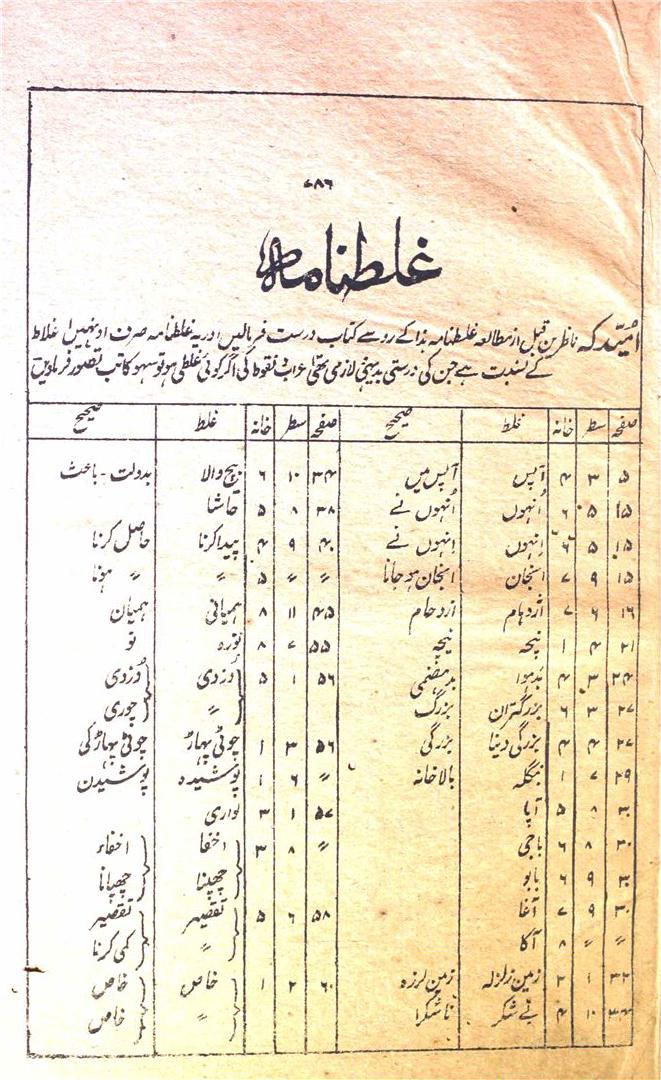 ۷۸۶
غلطنامہ
امید کہ ناظرین قبل از مطالعہ غلطنامہ ہذا کے رو سے کتاب درست فرمالیں اور یہ غلطنامہ صرف اونہیں اغلاط
کے نسبت ہے جن کی درستی بدیہی لازمی تھی اعراب و نقوط کی اگر کوئی غلطی ہو تو سہو کاتب تصور فرماویں
صفحہ سطر خانہ غلط صحیح صفحہ سطر خانہ غلط صحیح
۵ ۳ ۴ آپس آپس میں ۳۴ ۱۰ ۶ بیچ والا بدولت - باعث
۱۵ ۵ ۶ اُنہوں اُنہوں نے ۳۸ ۸ ۵ حاشا
۱۵ ۵ ۶ اِنہوں اِنہوں نے ۴۰ ۹ ۴ پیدا کرنا حاصل کرنا
۱۵ ۹ ۷ انجان انجان ہو جانا 〃 〃 ۵ 〃 〃 ہونا
۱۶ ۶ ۷ اژدہام ازدحام ۴۵ ۱۱ ۸ ہمیانی ہمیان
۲۱ ۴ ۱ نیحہ نیچہ ۵۵ ۷ ۸ نورہ نو
۲۴ ۳ ۴ بدہوا بدہضمی ۵۶ ۱ ۵ دُزدی دُزدی
۲۷ ۳ ۶ بزرگتران بزرگ 〃 چوری
۲۷ ۴ ۴ بزرگی دینا بزرگی ۵۶ ۳ ۱ چوٹی پہاڑ چوٹی پہاڑ کی
۲۹ ۷ ۱ بنگلہ بالا خانہ 〃 ۶ ۱ پوشیدہ پوشیدن
۳۰ ۸ ۵ آپا ۵۷ ۱ ۳ نواری
۳۰ ۸ ۶ باجی 〃 ۸ ۳ اخفا اخفاء
۳۰ ۹ ۶ بابو چھپنا چھپانا
۳۰ ۹ ۷ آغا ۵۸ ۶ ۵ تقصیر تقصیر
〃 〃 ۸ آکا 〃 کمی کرنا
۳۲ ۱ ۲ زمین زلزلہ زمین لرزہ ۶۰ ۲ ۱ خاص خاص
۳۴ ۱۰ ۴ بے شکر ناشکرا 〃 خاص